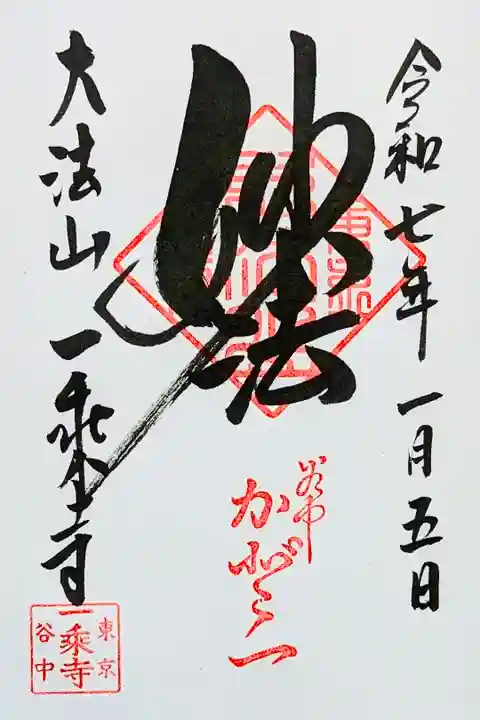 令和七年一月五日
妙法
谷中
大法山一乗寺
東京
一乗寺
谷中